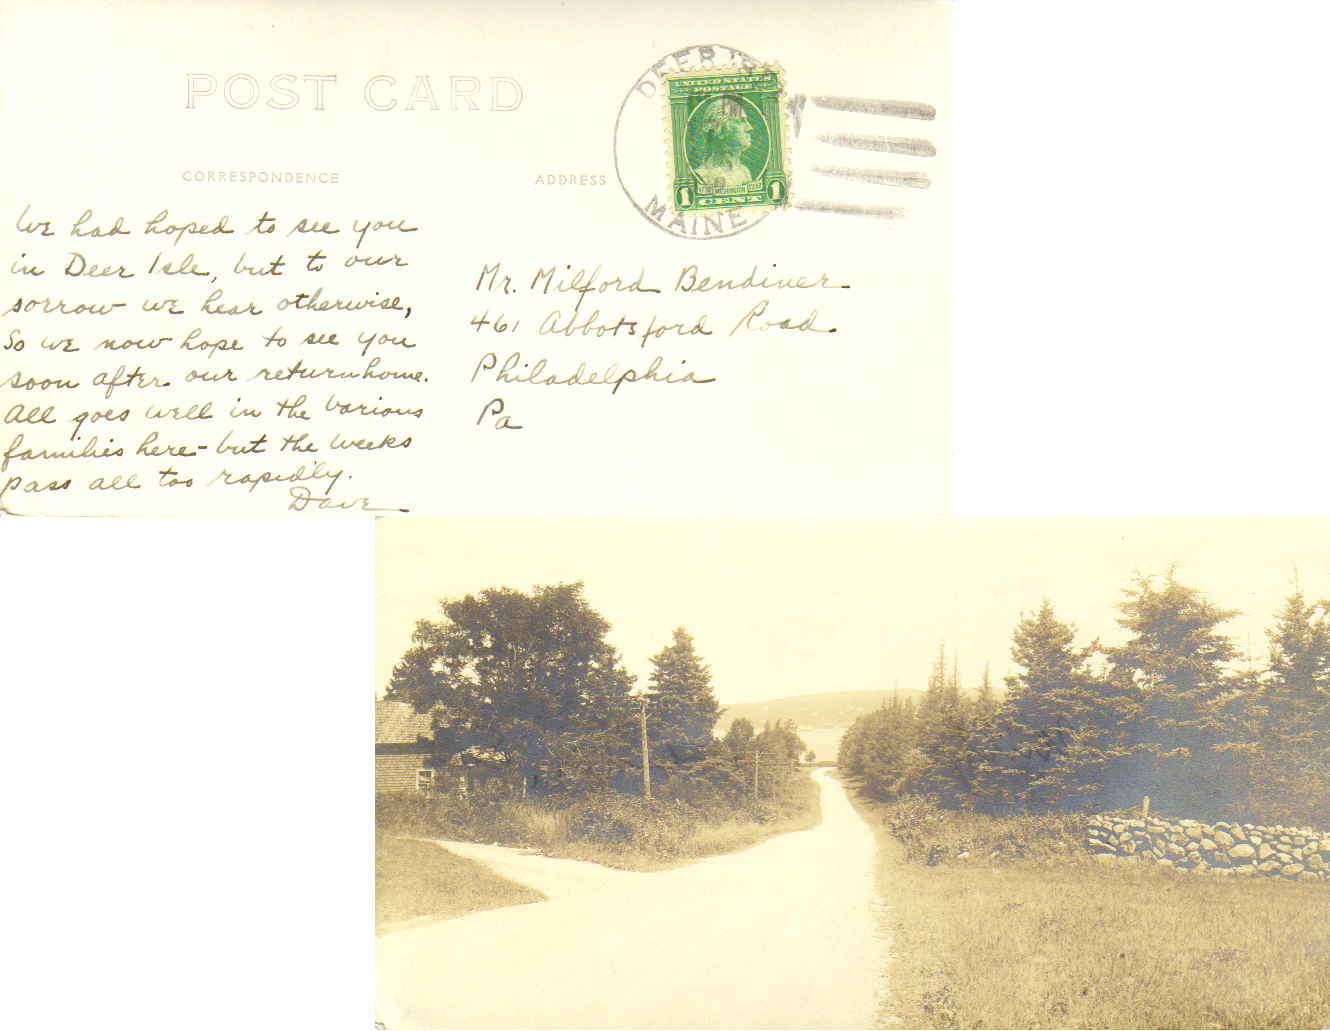 POST CARD
CORRESPONDENCE
ADDRESS
DEER ISLE
MAINE
UNITED STATES
POSTAGE
WASHINGTON
1 CENT 1
We had hoped to see you
in Deer Isle, but to our
sorrow we hear otherwise,
So we now hope to see you
soon after our return home.
All goes well in the various
families here - but the weeks
pass all too rapidly.
Dave
Mr. Milford Bendiner
461 Abbotsford Road.
Philadelphia
Pa